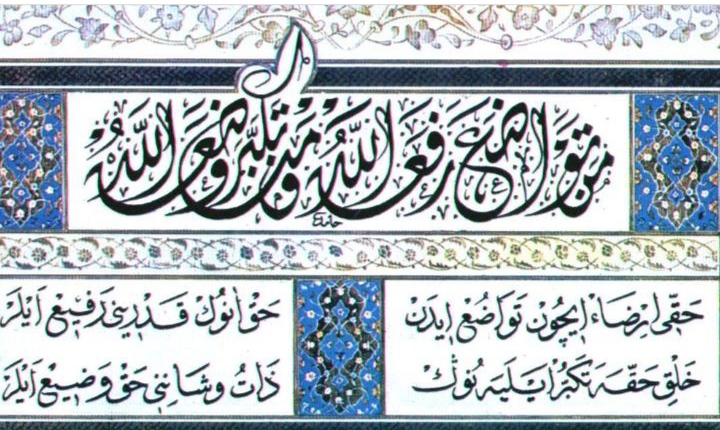 من تواضع رفعه الله ومن تكبر وضعه الله
حامد
حقی ارضاء ایچون تواضع ایدن حق انوك قدرینی رفیع ایلر
خلق حقه تكبر ایلیه نوڭ ذات وشاننی حق وضیع ایلر